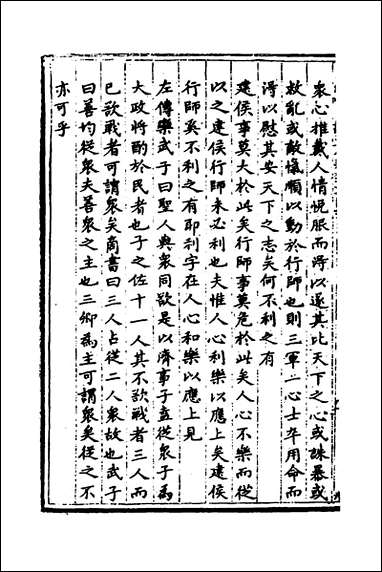 衆心推戴人情悅服而得以遂其比天下之心或誅暴或
救亂或敵愾順以動於行師也則三軍一心士卒用命而
得以慰其安天下之志矣何不利之有
建侯事莫大於此矣行師事莫危於此矣人心不樂而從
以之建侯行師未必利也夫惟人心利樂以應上矣建侯
行師奚不利之有耶利字在人心和樂以應上見
左傳欒武子曰聖人與衆同欲是以濟事子盍從衆子為
大政將酌於民者也子之佐十一人其不欲戰者三人而
已欲戰者可謂衆矣商書曰三人占從二人衆故也武子
曰善均從衆夫善衆之主也三卿為主可謂衆矣從之不
亦可乎